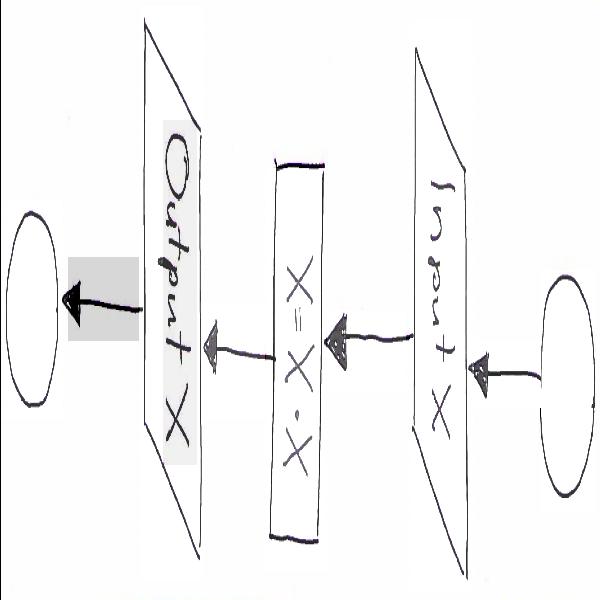 Input X
X = X . X
Output X